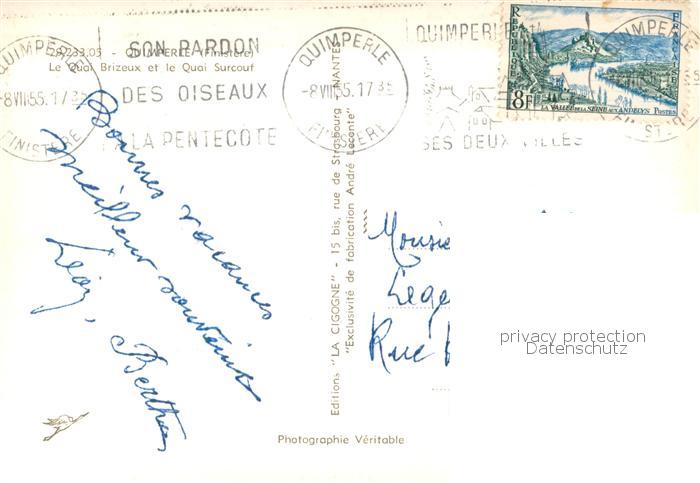 29.233.05 - QUIMPERLÉ (Finistère)
Le Quai Brizeux et le Quai Surcouf
QUIMPERLE
-8 VIII 55. 17 35
FINISTERE
SON PARDON
DES OISEAUX
A LA PENTECOTE
QUIMPERLE
-8 VIII 55. 17 35
FINISTERE
QUIMPERLE
SES DEUX VILLES
QUIMPERLE
REPUBLIQUE FRANÇAISE
8F
LA VALLÉE DE LA SEINE AUX ANDELYS POSTES
Bonnes vacances
meilleur souvenir
Léon, Berthe
Editions "LA CIGOGNE" - 15 bis, rue de Strasbourg - NANTES
"Exclusivité de fabrication André Leconte"
Monsie
Lege
Rue
privacy protection
Datenschutz
Photographie Véritable